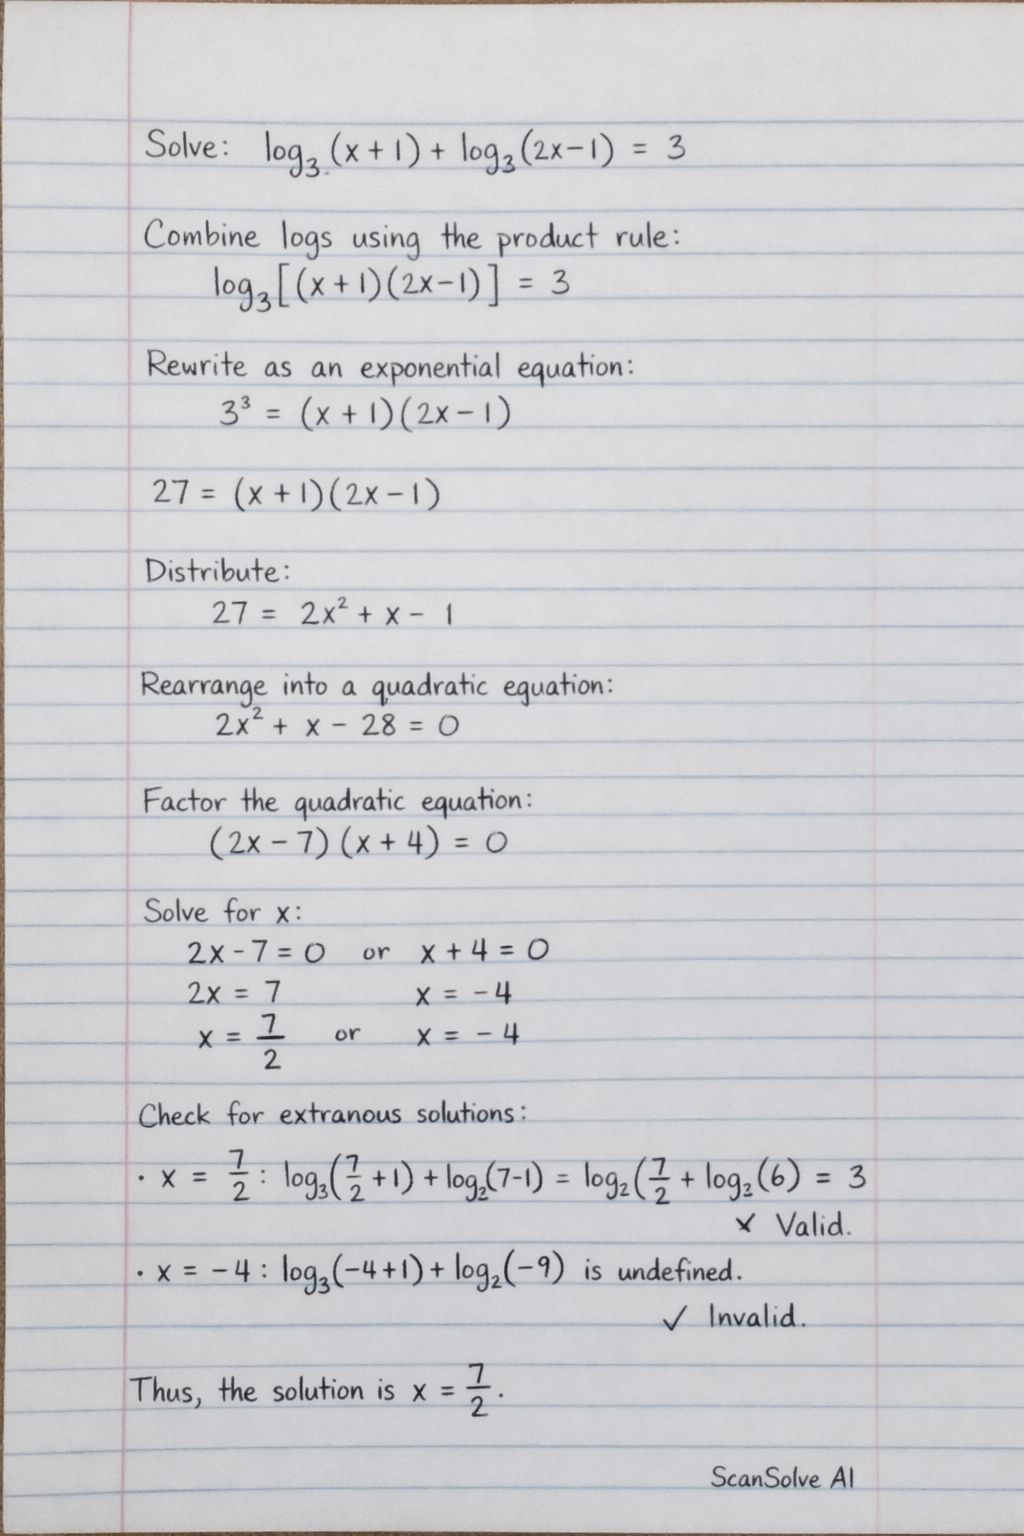 Solve: log₃(x + 1) + log₃(2x − 1) = 3
Combine logs using the product rule:
log₃[(x + 1)(2x − 1)] = 3
Rewrite as an exponential equation:
3³ = (x + 1)(2x − 1)
27 = (x + 1)(2x − 1)
Distribute:
27 = 2x² + x − 1
Rearrange into a quadratic equation:
2x² + x − 28 = 0
Factor the quadratic equation:
(2x − 7)(x + 4) = 0
Solve for x:
2x − 7 = 0 or x + 4 = 0
2x = 7 x = −4
x = 7/2 or x = −4
Check for extranous solutions:
· x = 7/2 : log₃(7/2 + 1) + log₂(7−1) = log₂(7/2 + log₂(6) = 3
× Valid.
· x = −4 : log₃(−4+1) + log₂(−9) is undefined.
✓ Invalid.
Thus, the solution is x = 7/2.
ScanSolve AI